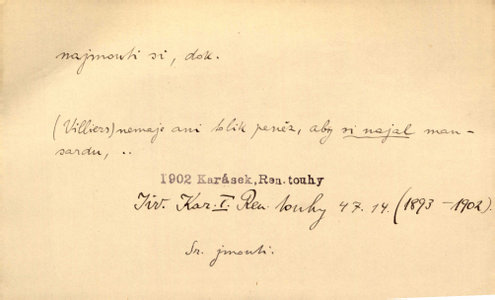 najmouti si, dok.
(Villiers) nemaje ani tolik peněz, aby si najal man-
sardu, ..
1902 Karásek, Ren. touhy
Jiř. Kar. I. Ren. touhy 47. 14. (1893 - 1902).
Sr. jmouti.